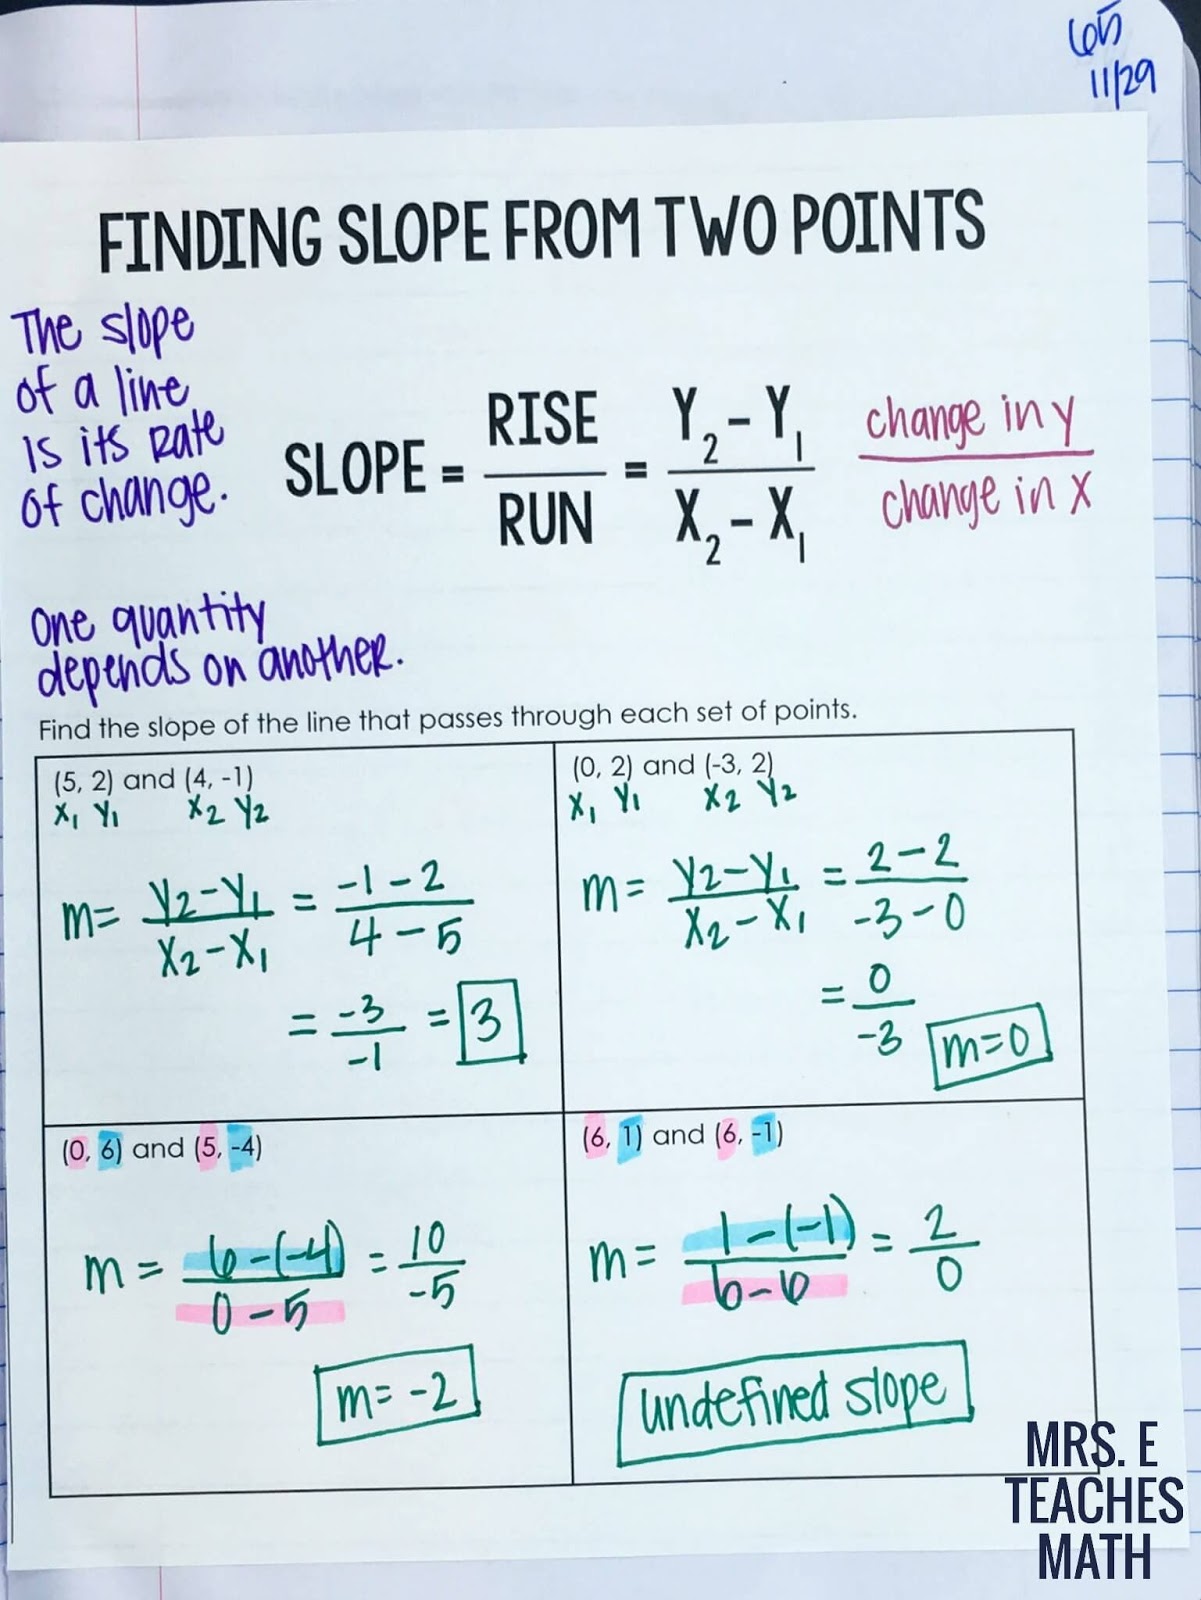 65
11/29
FINDING SLOPE FROM TWO POINTS
The slope
of a line
is its rate
of change.
SLOPE = RISE / RUN = Y₂ - Y₁ / X₂ - X₁
change in y / change in x
One quantity
depends on another.
Find the slope of the line that passes through each set of points.
(5, 2) and (4, -1)
X₁ Y₁ X₂ Y₂
m= Y₂-Y₁ / X₂-X₁ = -1-2 / 4-5
= -3 / -1 = 3
(0, 2) and (-3, 2)
X₁ Y₁ X₂ Y₂
m= Y₂-Y₁ / X₂-X₁ = 2-2 / -3-0
= 0 / -3
m=0
(0, 6) and (5, -4)
m = 6-(-4) / 0-5 = 10 / -5
m= -2
(6, 1) and (6, -1)
m = 1-(-1) / 6-6 = 2 / 0
undefined slope
MRS. E
TEACHES
MATH